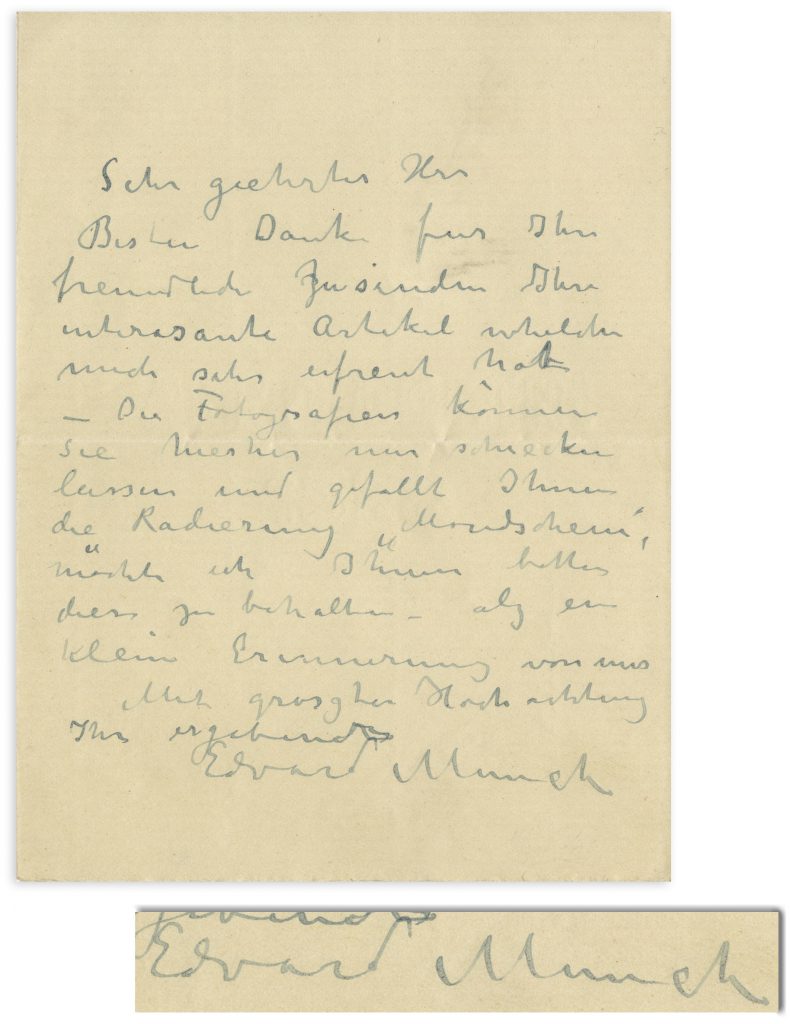 Sehr geehrter Herr
Besten Danke fur Ihre
freundliche Zusenden Ihre
interasante Artikel whelche
mich sehr erfreut hat
— Die Fotografien können
Sie hierher nur schicken
lassen und gefällt Ihnen
die Radierung „Mondschein",
möchte ich Ihnen bitten
diese zu behalten – als ein
klein Erinnerung von mir
Mit grosster Hochachtung
Ihr ergebender
Edvard Munch
Edvard Munch